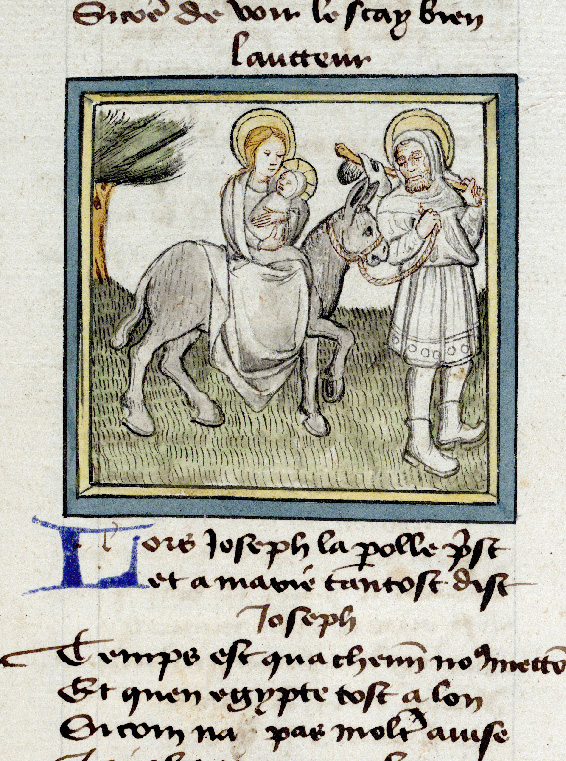 Sicōe de voir le scay bien
Lautteur
Lors Joseph la polle p̄st
et a marie tantost dist
Joseph
Temps est qua chemī noꝰ metto
Et quen egypte tost a lon
Si com na pas molt auise